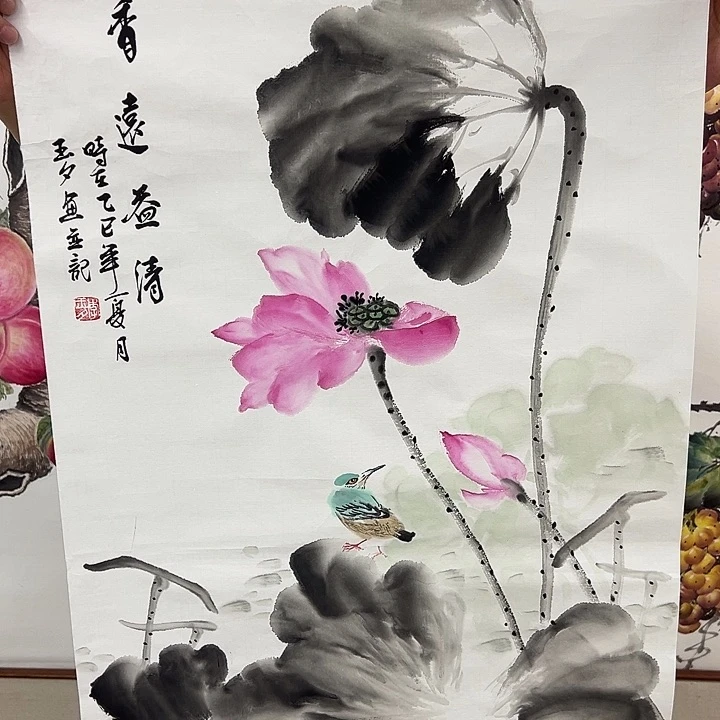 香遠益清
時在乙巳年夏月
玉夕画并記